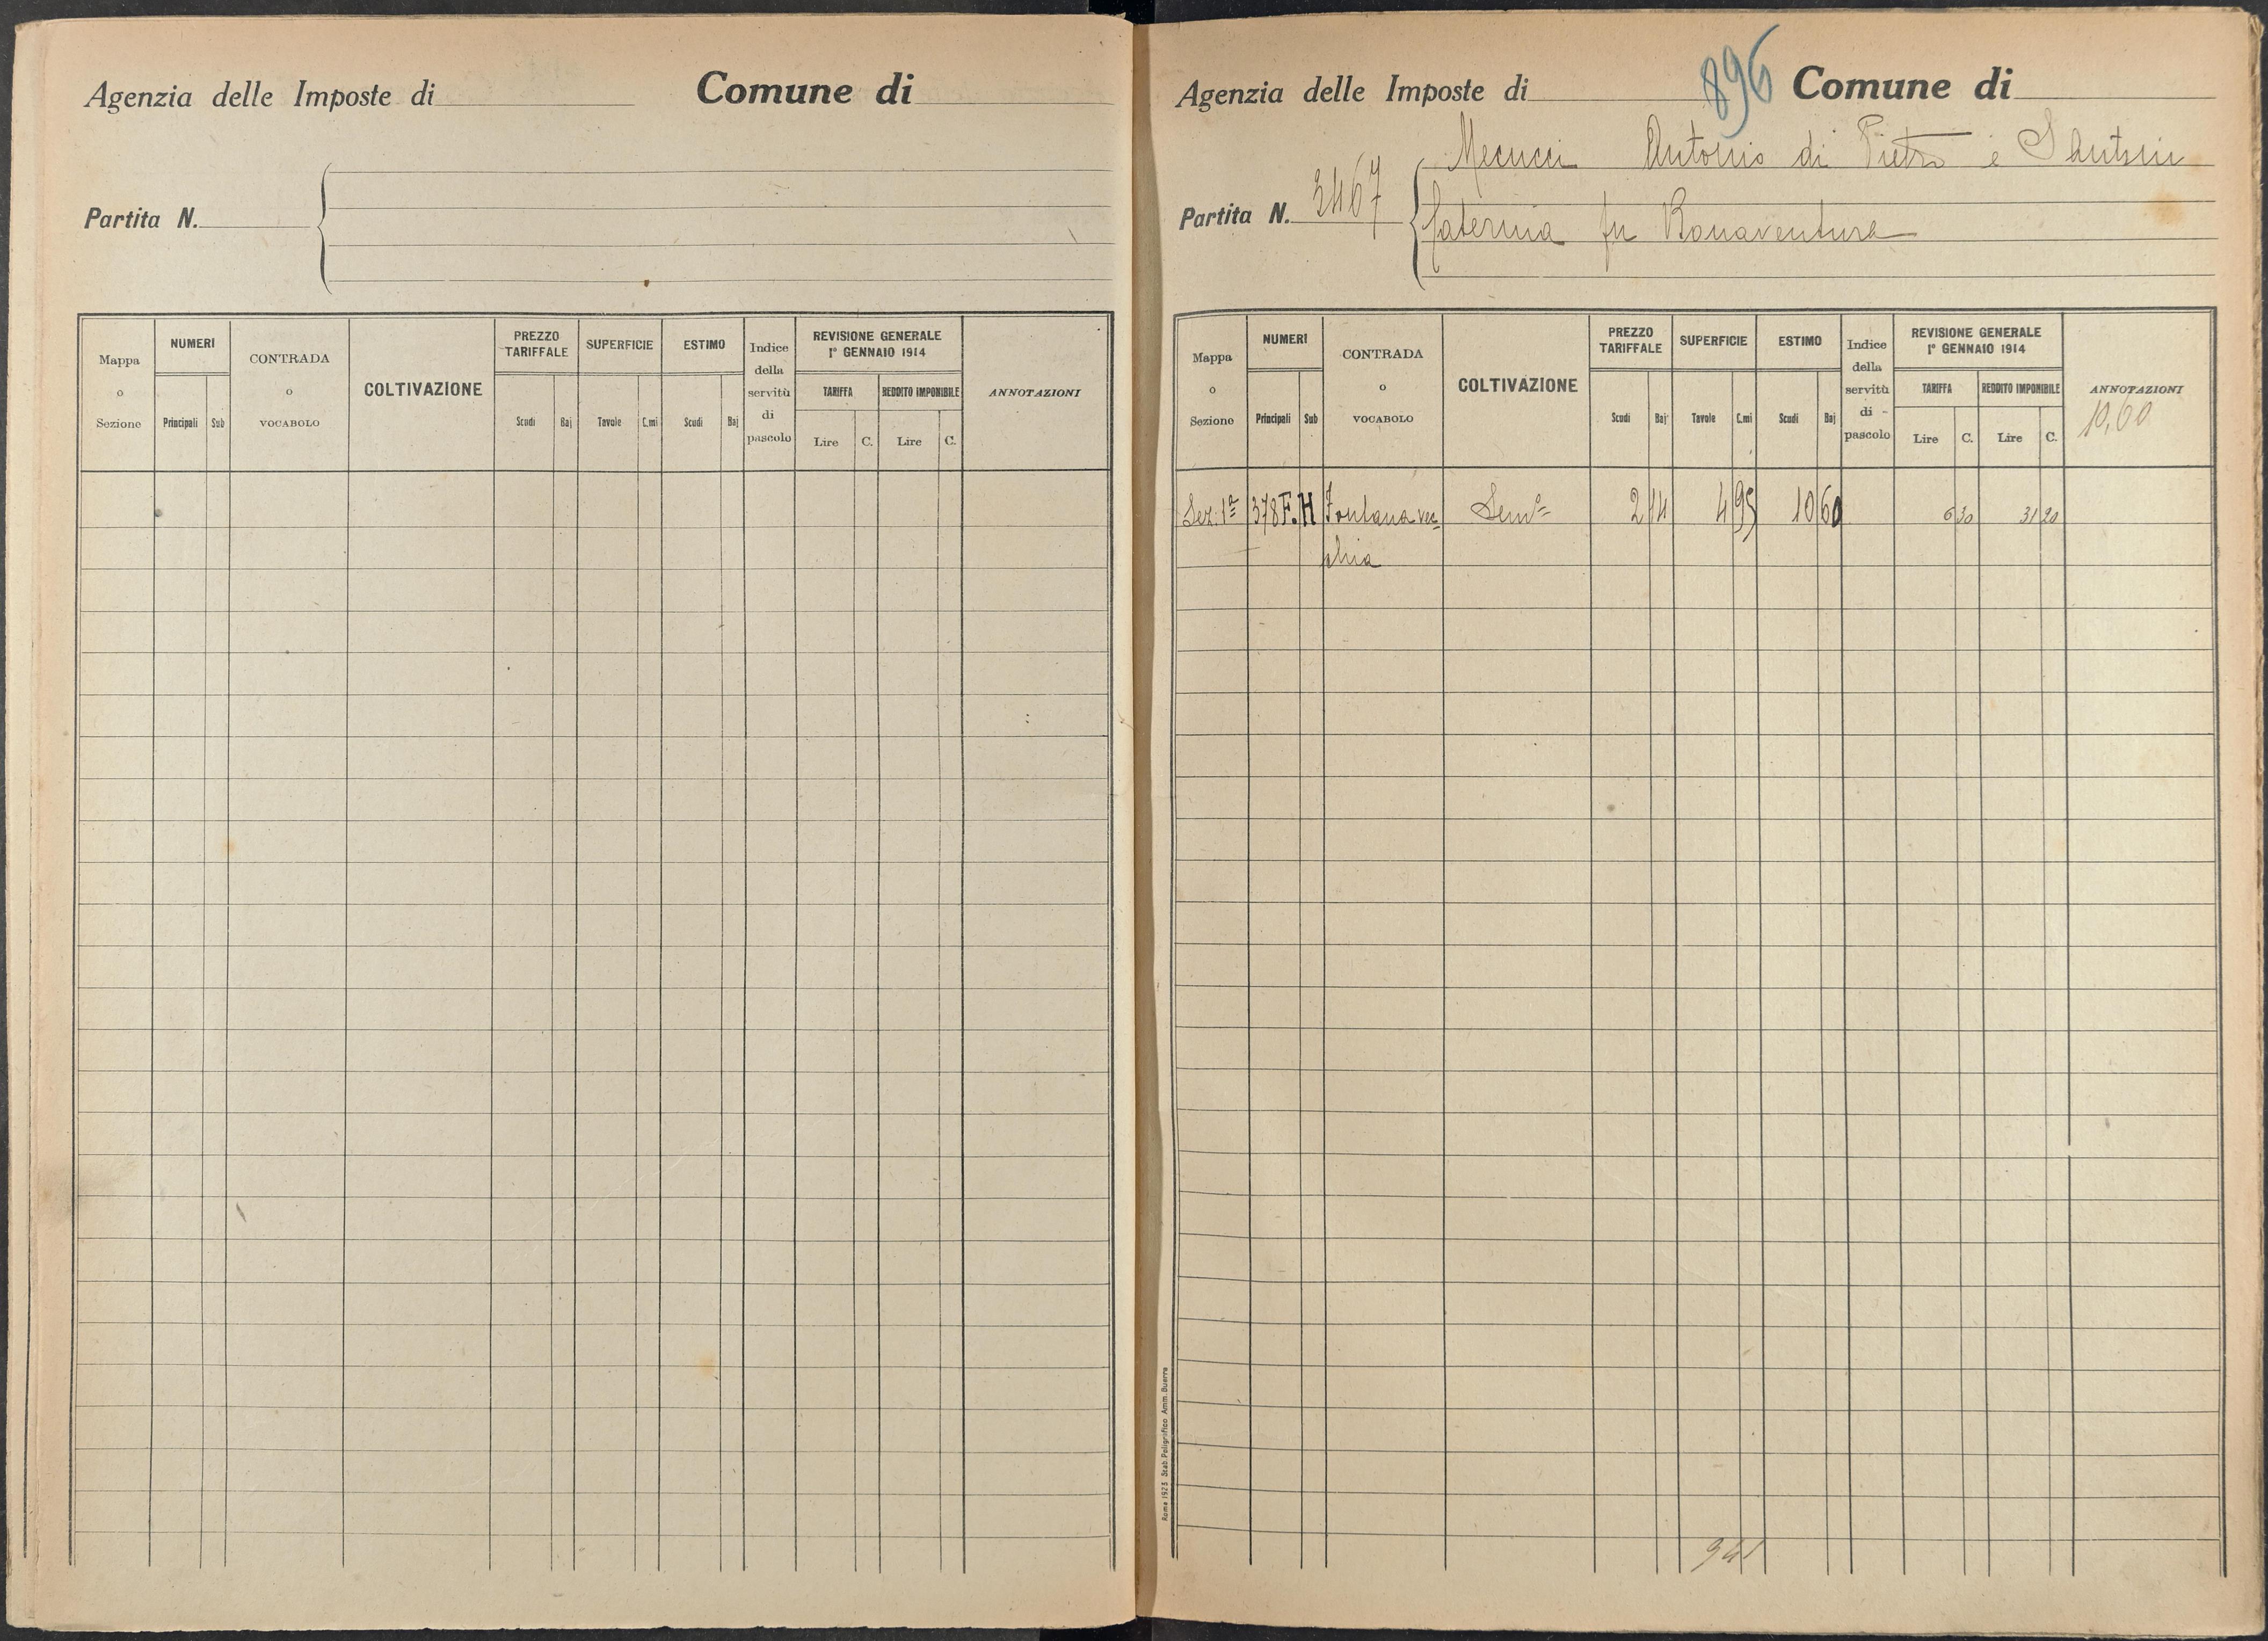 Agenzia delle Imposte di Comune di
Partita N.
Mappa o Sezione
NUMERI
Principali Sub
CONTRADA o VOCABOLO
COLTIVAZIONE
PREZZO TARIFFALE
Scudi Baj
SUPERFICIE
Tavole C.mi
ESTIMO
Scudi Baj
Indice della servitù di pascolo
REVISIONE GENERALE
1° GENNAIO 1914
TARIFFA REDDITO IMPONIBILE
Lire C. Lire C.
ANNOTAZIONI
896
Agenzia delle Imposte di Comune di
Mecucci Antonio di Pietro e
Partita N. 3467
Caterina fu Bonaventura
Mappa o Sezione
NUMERI
Principali Sub
CONTRADA o VOCABOLO
COLTIVAZIONE
PREZZO TARIFFALE
Scudi Baj
SUPERFICIE
Tavole C.mi
ESTIMO
Scudi Baj
Indice della servitù di pascolo
REVISIONE GENERALE
1° GENNAIO 1914
TARIFFA REDDITO IMPONIBILE
Lire C. Lire C.
ANNOTAZIONI
10,60
Sez. 1ª 378 F. H Fontana vec= Sem° 2 14 4 95 10 60 6 30 31 20
chia
Roma 1925 Stab. Poligrafico Amm. Guerra